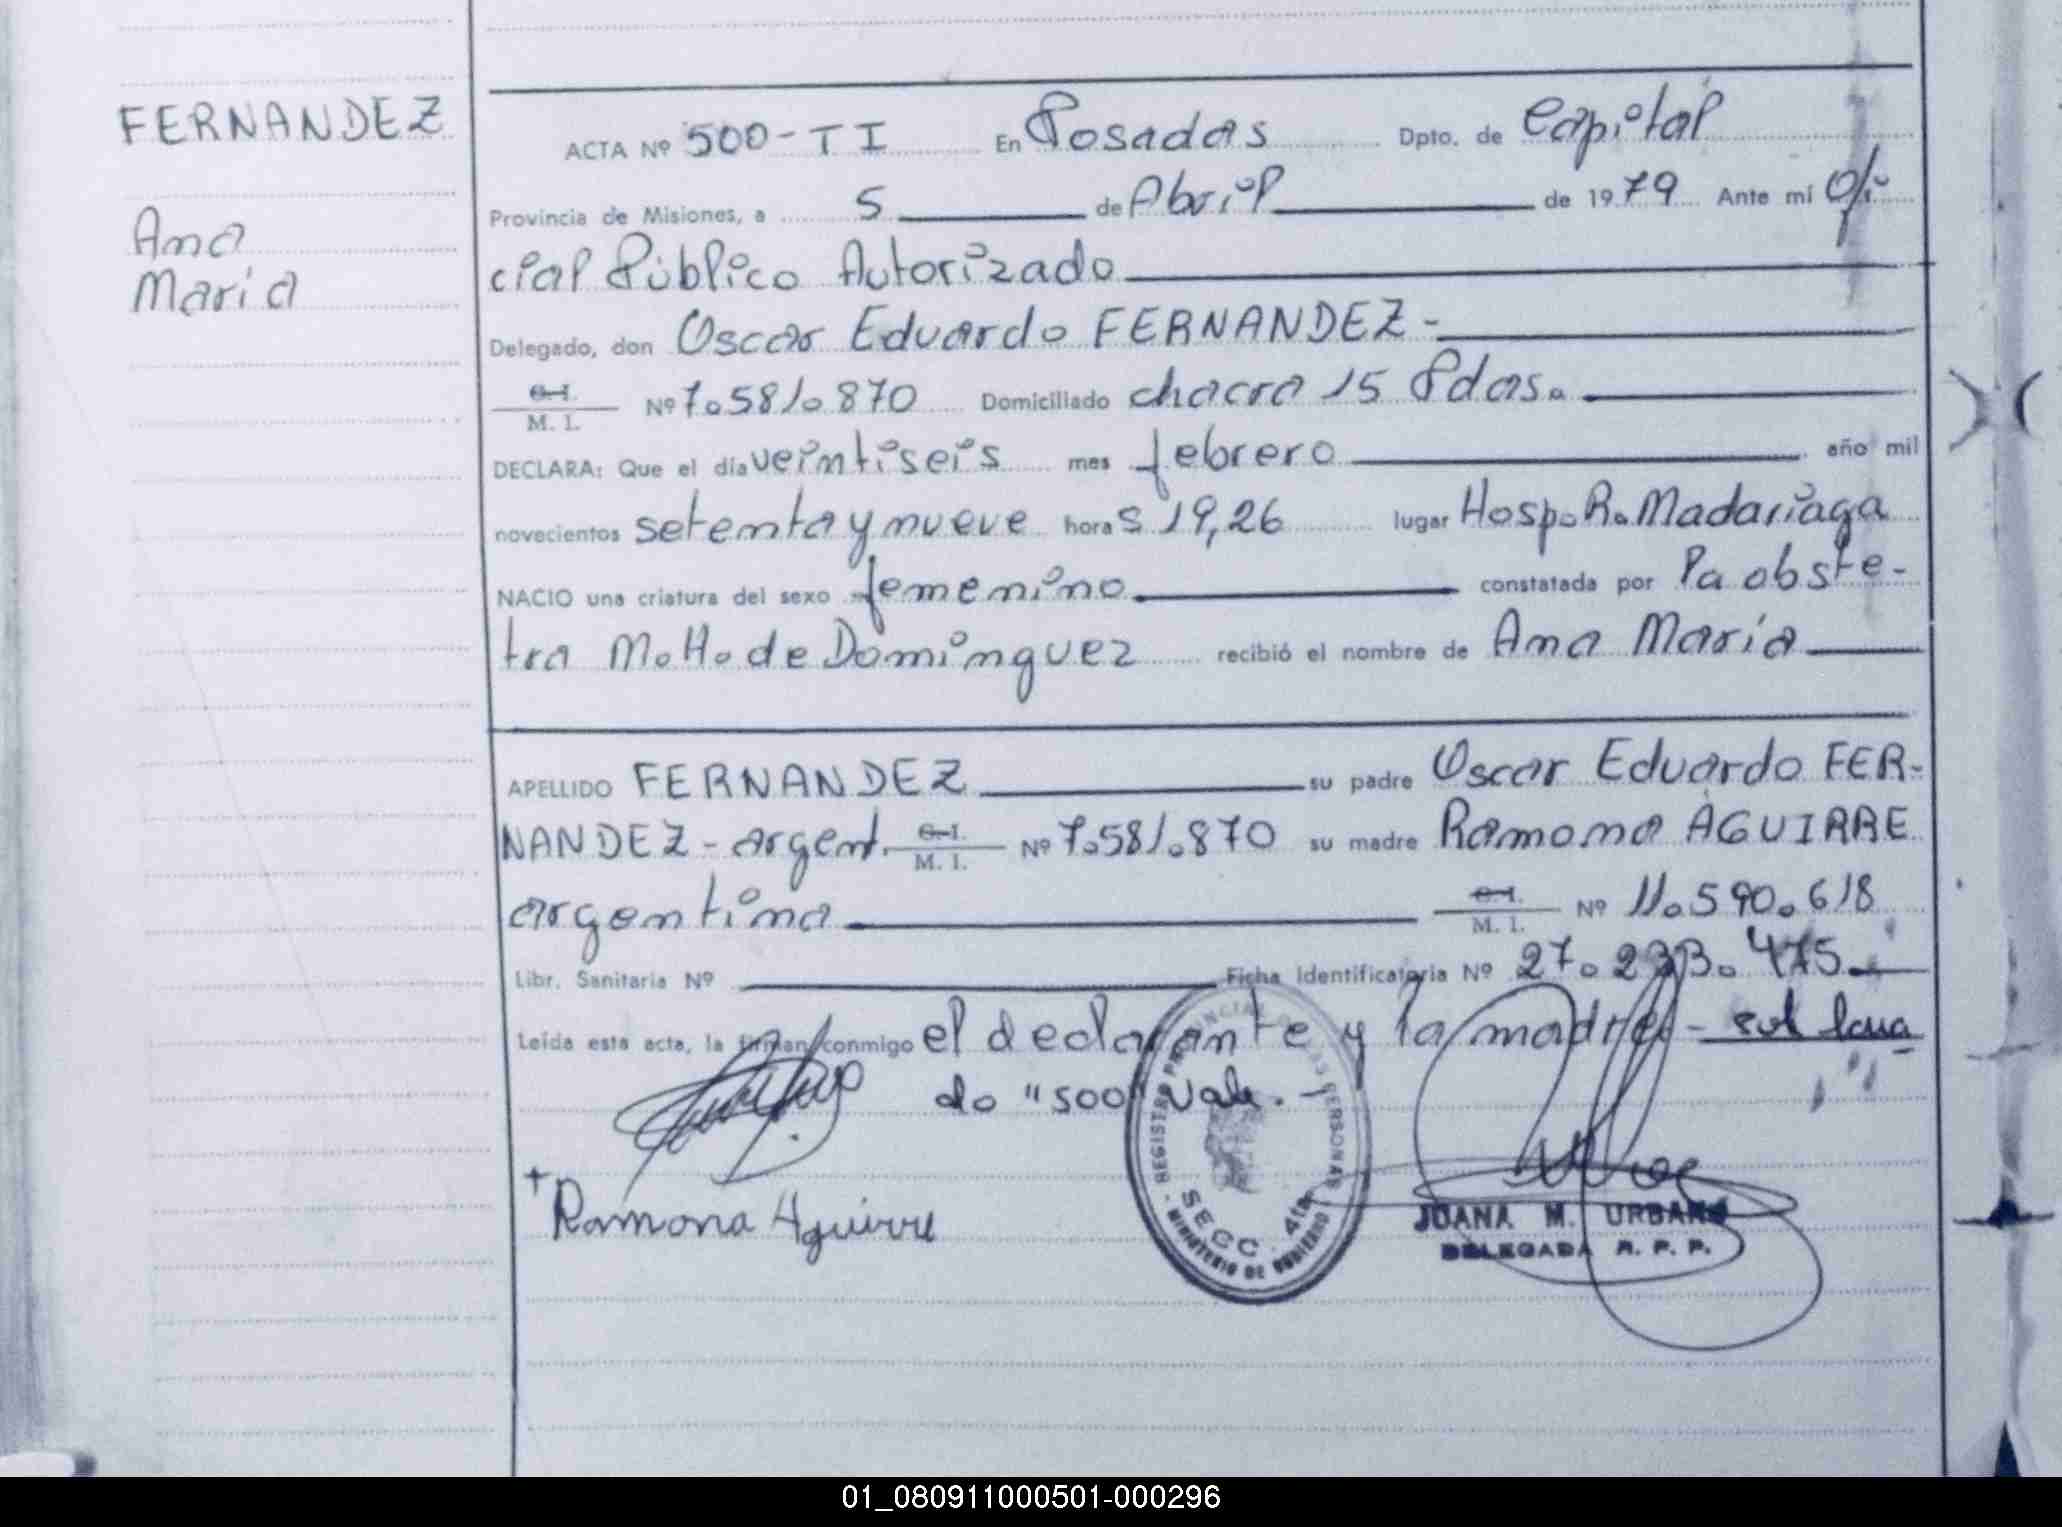 FERNANDEZ
Ana
Maria
ACTA Nº 500-TI En Posadas Dpto. de Capital
Provincia de Misiones, a 5 de Abril de 1979 Ante mí Ofi-
cial Público Autorizado
Delegado, don Oscar Eduardo FERNANDEZ-
C.I. M. I. Nº 7.581.870 Domiciliado chacra 15 Pdas.
DECLARA: Que el día veintiseis mes febrero año mil
novecientos setenta y nueve horas 19,26 lugar Hosp. R. Madariaga
NACIO una criatura del sexo femenino constatada por la obste-
tra M. H. de Dominguez recibió el nombre de Ana Maria
APELLIDO FERNANDEZ su padre Oscar Eduardo FER-
NANDEZ - argent. C.I. M. I. Nº 7.581.870 su madre Ramona AGUIRRE
argentina C.I. M. I. Nº 11.590.618
Libr. Sanitaria Nº Ficha Identificatoria Nº 27.233.475
Leída esta acta, la firman conmigo el declarante y la madre-
do "500" Vale.-
Ramona Aguirre
REGISTRO PROVINCIAL DE LAS PERSONAS
SECC. 4ta
MINISTERIO DE GOBIERNO
JUANA M. URBANO
DELEGADA R. P. P.
01_080911000501-000296